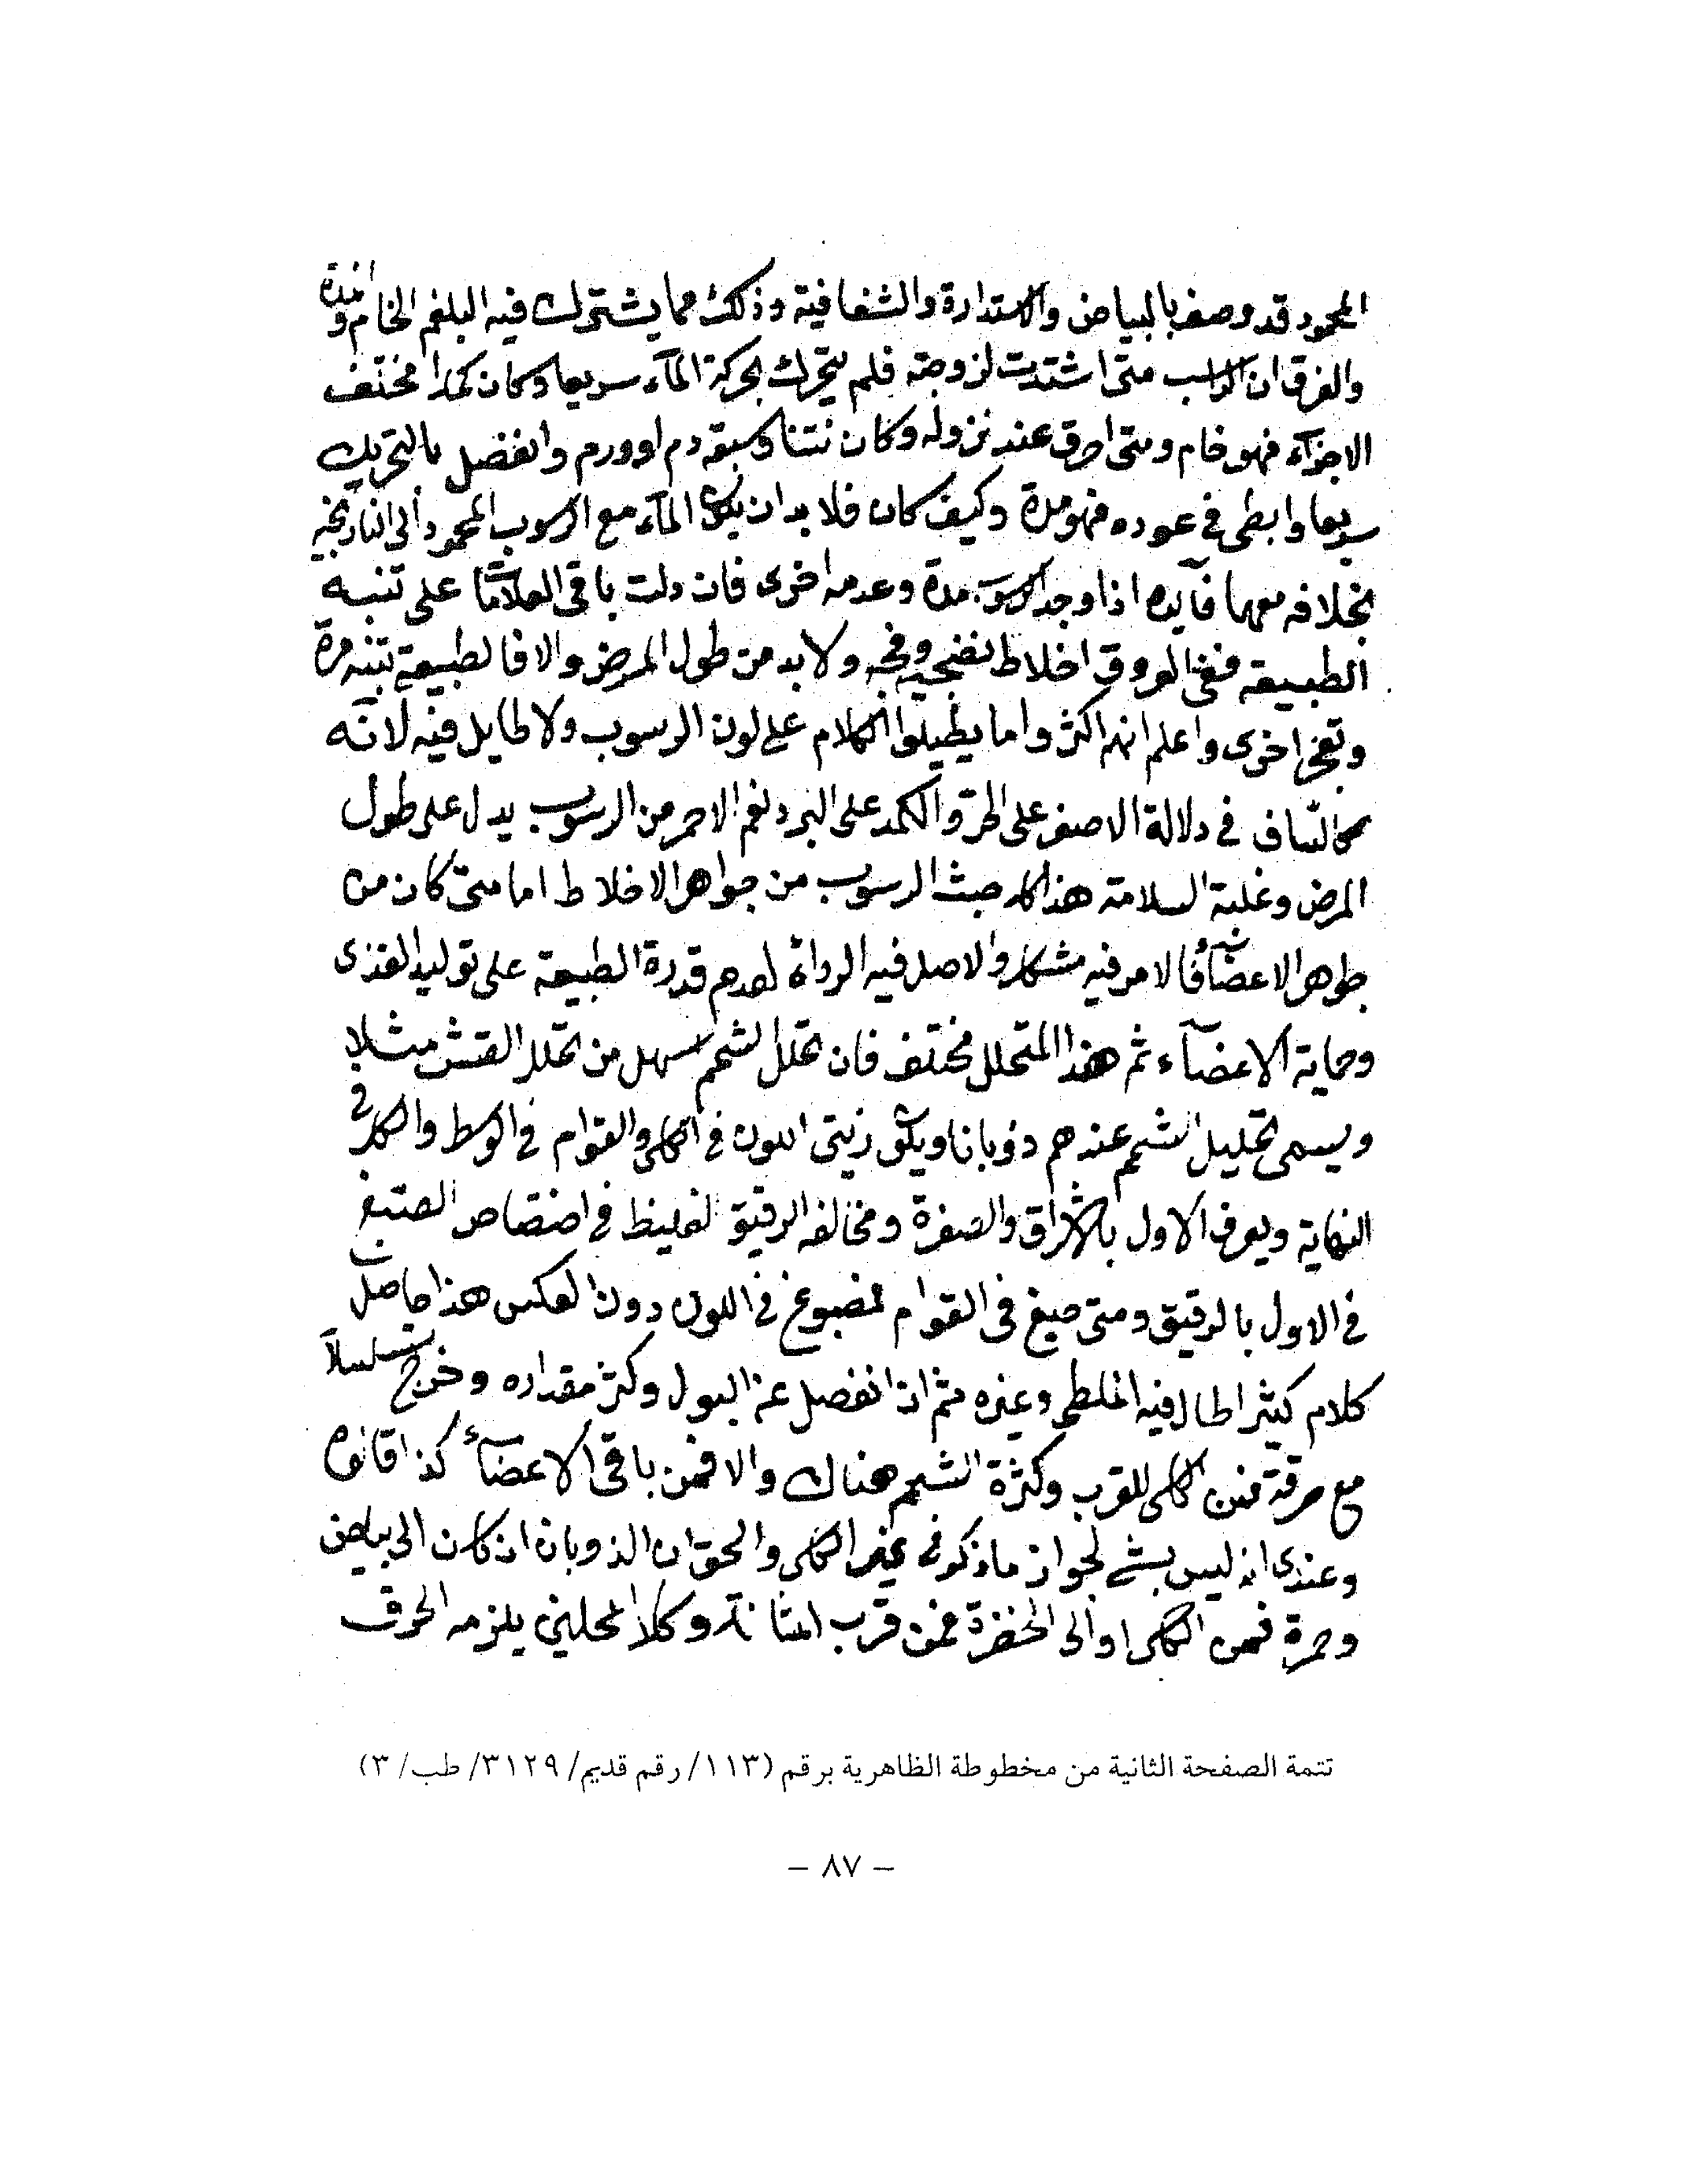 المحمود قد وصف بالبياض والاستدارة والشفافية وذلك مما يشترك فيه البلغم الخام والمدة
والفرق ان الراسب متى اشتدت لزوجته فلم يتحرك بحركة المآء سريعا وكان كمدا مختلف
الاجزآء فهو خام ومتى احرق عند نزوله وكان نتنا وسبقه دم او ورم وانفصل بالتحريك
سريعا وابطى في عوده فهو مدة وكيف كان فلا بد ان يكون المآء مع الرسوب المحمود الى النارنجية
بخلافه معهما فآيده اذا وجد الرسوب مدة وعدمه اخرى فان دلت باقي العلامات على تنبيه
الطبيعة ففي العروق اخلاط نضجية وفجة ولا بد من طول المرض والا فالطبيعة تتنبه مرة
وتعجز اخرى واعلم انهم اكثر واما يطيلوا الكلام على لون الرسوب ولا طايل فيه لانه
كالتساف في دلالة الاصفر على الحرة والكمد على البرد نعم الاحمر من الرسوب يدل على طول
المرض وغلبة السلامة هذا كله حيث الرسوب من جواهر الاخلاط اما متى كان من
جواهر الاعضآء فالامر فيه مشكل والاصل فيه الرداة لعدم قدرة الطبيعة على توليد الغذى
وحماية الاعضآء ثم هذا المتحلل مختلف فان تحلل الشحم اسهل من تحلل القشر مثلا
ويسمى تحليل الشحم عندهم ذوبانا ويكون زيتى اللون في الكلى والقوام في الوسط والكل في
النهاية ويعرف الاول بالاشراق والصفرة ومخالفه الرقيق لغليظ في اختصاص الصبغ
في الاول بالرقيق ومتى صبغ في القوام لمصبوغ في اللون دون العكس هذا حاصل
كلام كثير اطال فيه الملطي وغيره ثم اذا انفصل عن البول وكثر مقداره وخرج
مع حرقة فمن الكلى للقرب وكثرة الشحم هناك والا فمن باقي الاعضآء كذا قالوه
وعندى انه ليس بشئ لجواز ما ذكروه في غير الكلى والحق ان الذوبان ان كان الى بياض
وحمرة فمن الكلى او الى الخضرة فمن قرب المثانة وكلا المحلين يلزمه الحرق
تتمة الصفحة الثانية من مخطوطة الظاهرية برقم (١١٣/ رقم قديم/ ٣١٢٩/ طب/ ٣)
– ٨٧ –